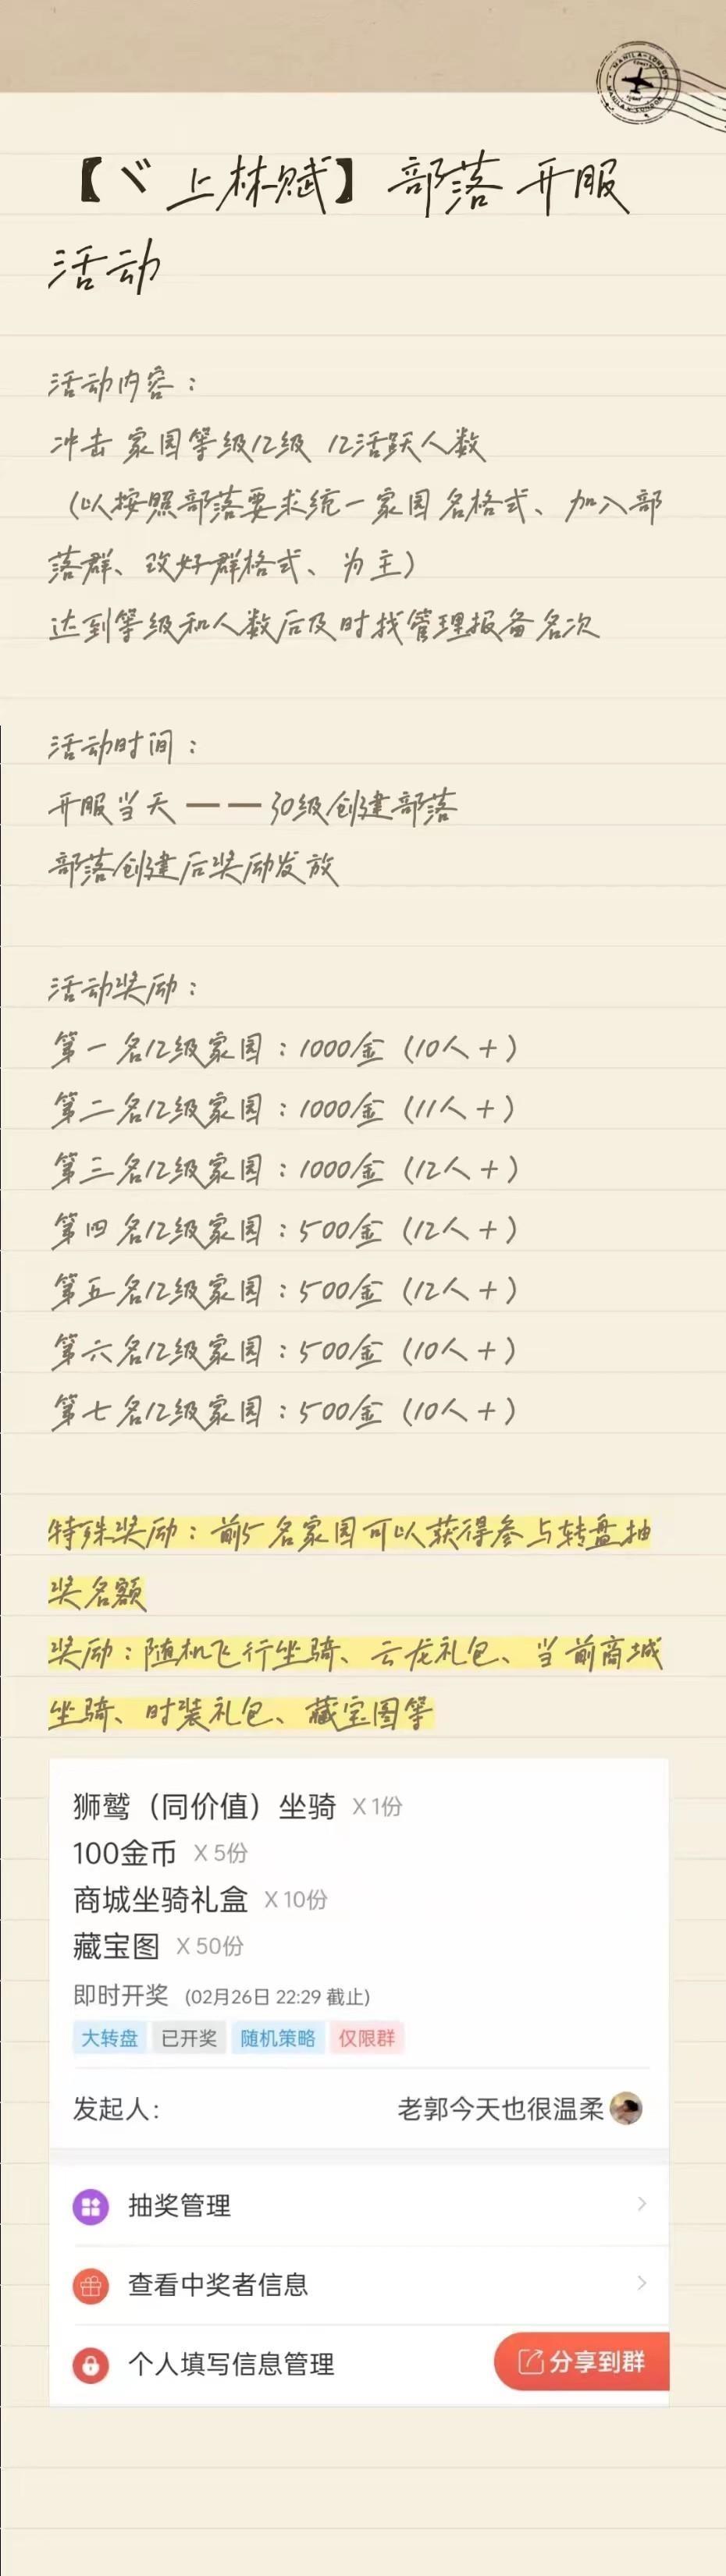 MANILA-LONDON
【ヾ上林赋】部落开服
活动
活动内容：
冲击 家园等级12级 12活跃人数
（以按照部落要求统一家园名格式、加入部
落群、改好群格式、为主）
达到等级和人数后及时找管理报备名次
活动时间：
开服当天 —— 30级创建部落
部落创建后奖励发放
活动奖励：
第一名12级家园：1000金（10人＋）
第二名12级家园：1000金（11人＋）
第三名12级家园：1000金（12人＋）
第四名12级家园：500金（12人＋）
第五名12级家园：500金（12人＋）
第六名12级家园：500金（10人＋）
第七名12级家园：500金（10人＋）
特殊奖励：前5名家园可以获得参与转盘抽
奖名额
奖励：随机飞行坐骑、云龙礼包、当前商城
坐骑、时装礼包、藏宝图等
狮鹫（同价值）坐骑 X 1份
100金币 X 5份
商城坐骑礼盒 X 10份
藏宝图 X 50份
即时开奖 (02月26日 22:29 截止)
大转盘 已开奖 随机策略 仅限群
发起人： 老郭今天也很温柔
抽奖管理
查看中奖者信息
个人填写信息管理 分享到群